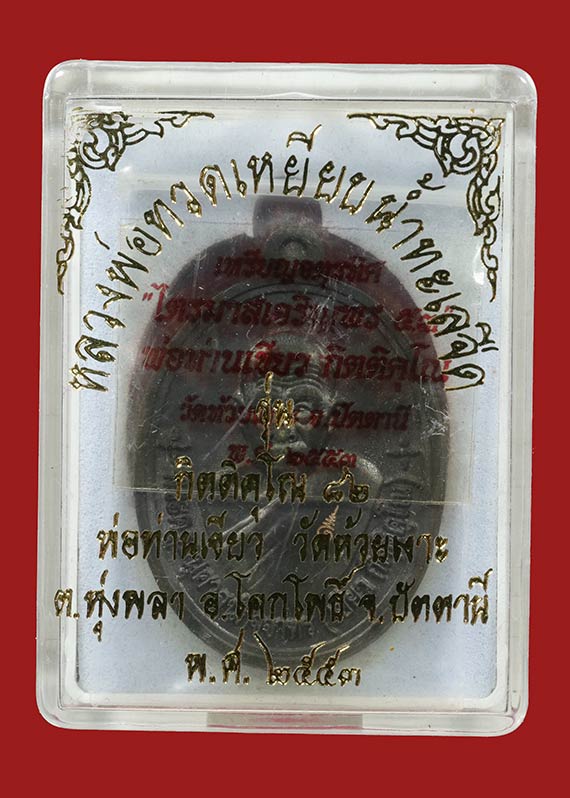 หลวงพ่อทวดเหยียบน้ำทะเลจืด
เหรียญ
"ไตรมาสเจริญพร
พ่อท่านเขียว กิตติคุโณ
จ.ปัตตานี
๒๕๕๓
รุ่น
กิตติคุโณ ๘๒
พ่อท่านเขียว วัดห้วยเงาะ
ต.ทุ่งพลา อ.โคกโพธิ์ จ.ปัตตานี
พ.ศ. ๒๕๕๓